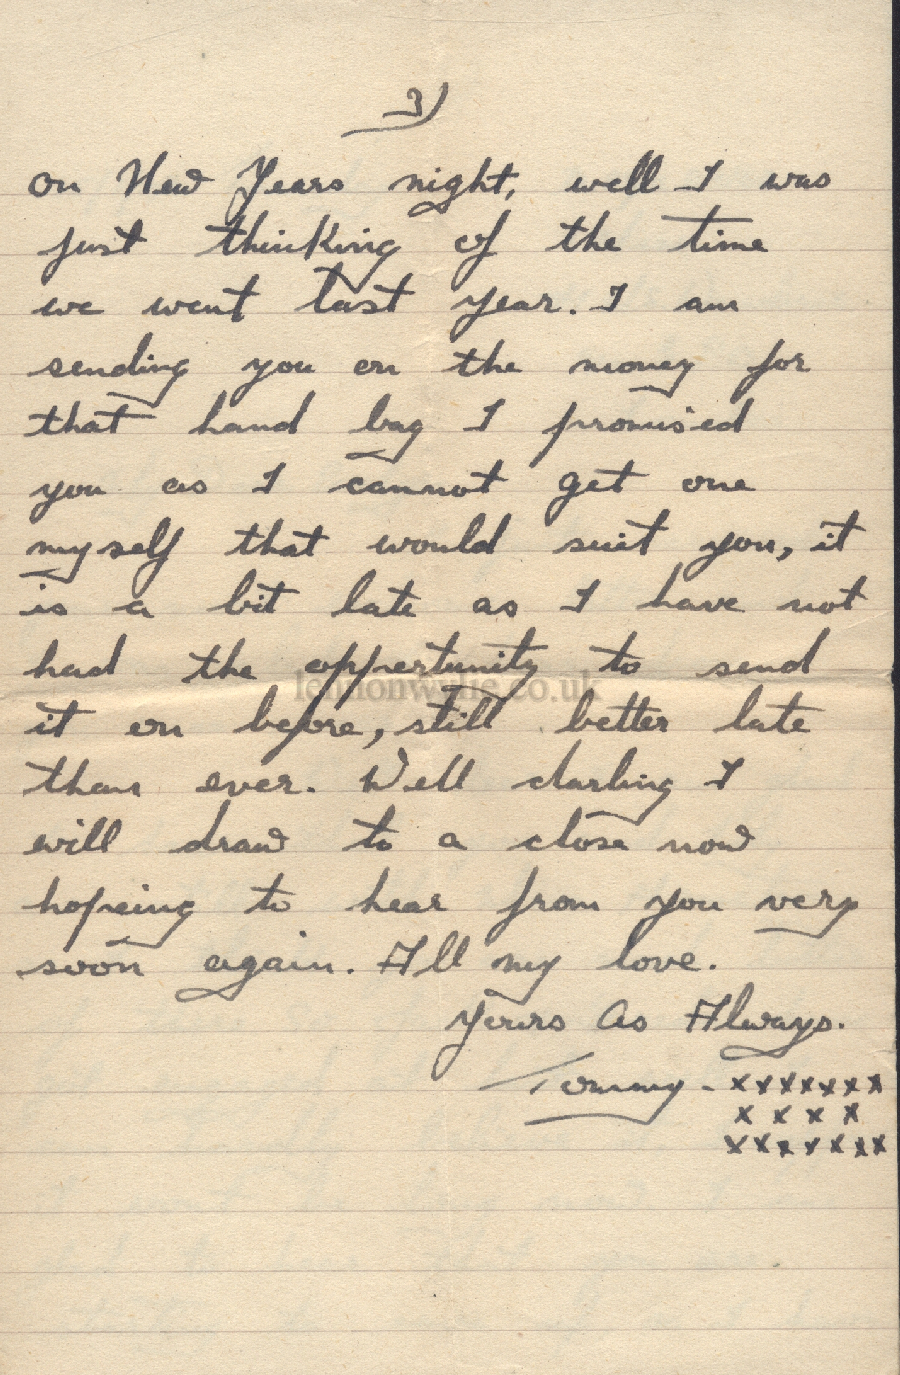 3)
on New Years night, well I was
just thinking of the time
we went last year. I am
sending you on the money for
that hand bag I promised
you as I cannot get one
myself that would suit you, it
is a bit late as I have not
had the oppertunity to send
lennonwylie.co.uk
it on before, still better late
than ever. Well darling I
will draw to a close now
hopeing to hear from you very
soon again. All my love.
Yours As Always.
Tommy - xxxxxxx
xxxx
xxxxxxx